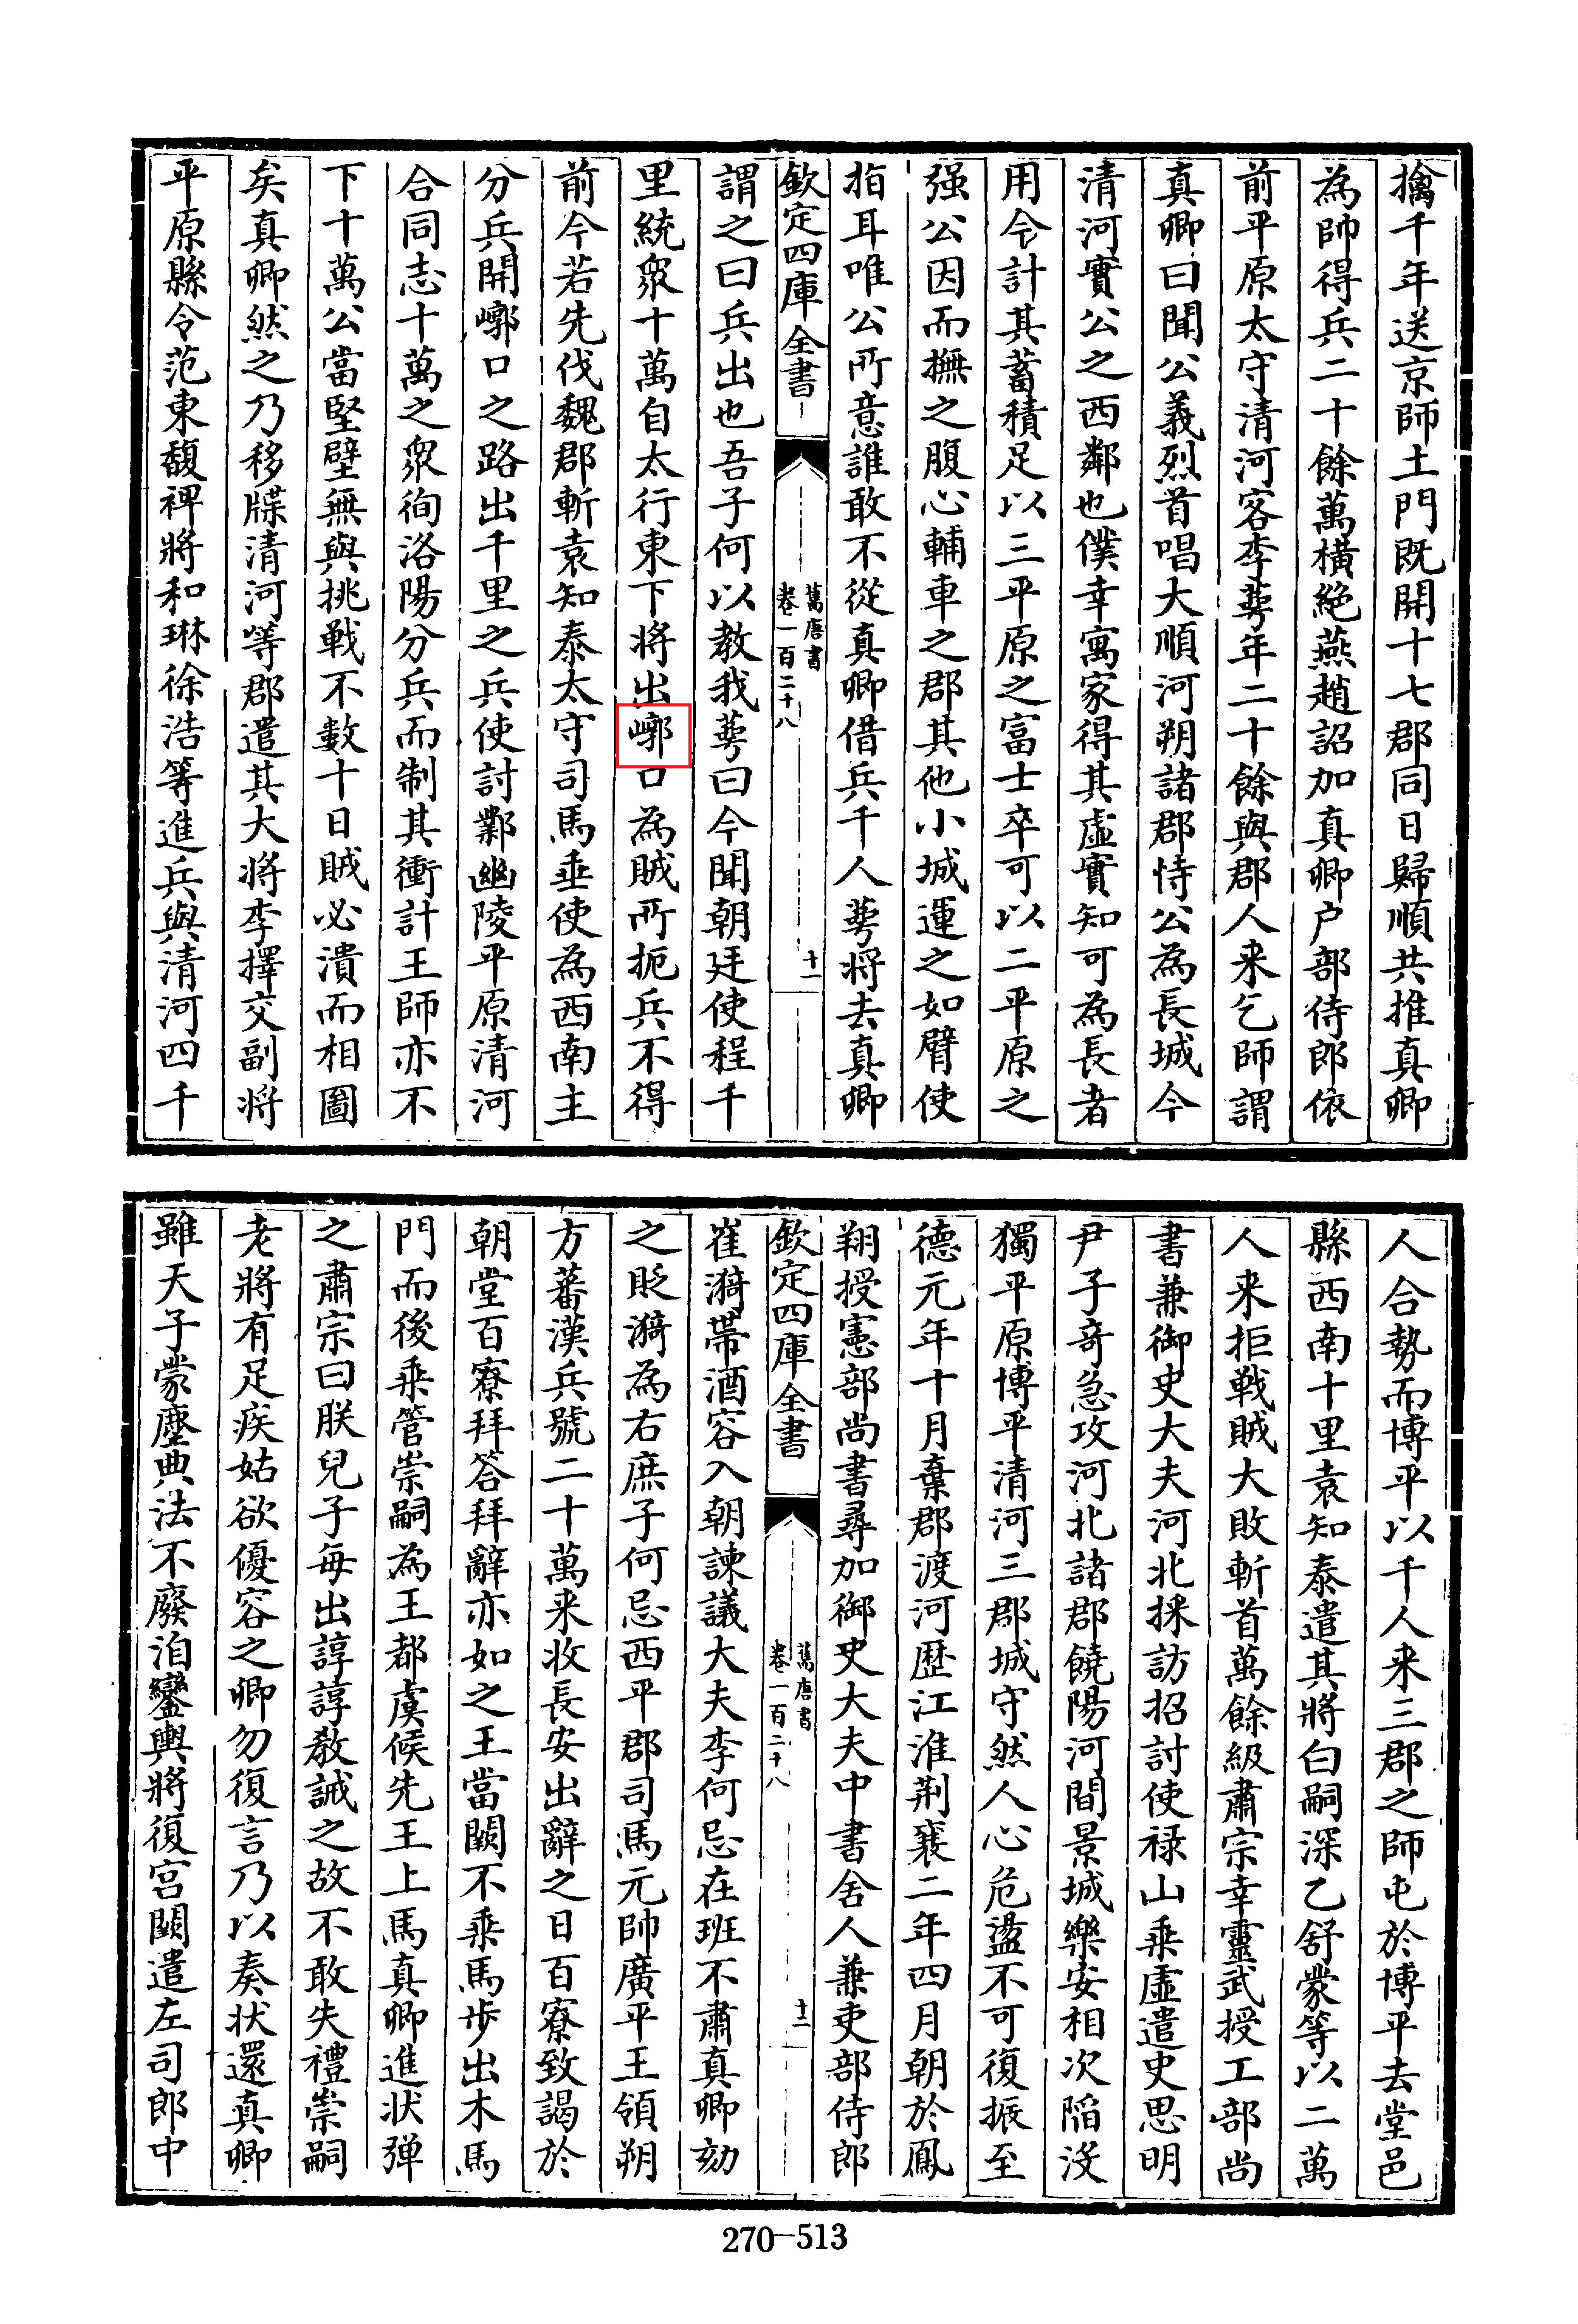 擒千年送京師土門既開十七郡同日歸順共推真卿
為帥得兵二十餘萬橫絶燕趙詔加真卿户部侍郎依
前平原太守清河客李蕚年二十餘與郡人来乞師謂
真卿曰聞公義烈首唱大順河朔諸郡恃公為長城今
清河實公之西鄰也僕幸寓家得其虛實知可為長者
用今計其蓄積足以三平原之富士卒可以二平原之
强公因而撫之腹心輔車之郡其他小城運之如臂使
指耳唯公所意誰敢不從真卿借兵千人蕚将去真卿
欽定四庫全書
舊唐書
卷一百二十八
十一
謂之曰兵出也吾子何以教我蕚曰今聞朝廷使程千
里統衆十萬自太行東下将出嶂口為賊所扼兵不得
前今若先伐魏郡斬袁知泰太守司馬垂使為西南主
分兵開嶂口之路出千里之兵使討鄴幽陵平原清河
合同志十萬之衆徇洛陽分兵而制其衝計王師亦不
下十萬公當堅壁無與挑戰不數十日賊必潰而相圖
矣真卿然之乃移牒清河等郡遣其大将李擇交副将
平原縣令范東馥裨將和琳徐浩等進兵與清河四千
人合勢而博平以千人来三郡之師屯於博平去堂邑
縣西南十里袁知泰遣其將白嗣深乙舒蒙等以二萬
人来拒戰賊大敗斬首萬餘級肅宗幸靈武授工部尚
書兼御史大夫河北採訪招討使禄山乘虛遣史思明
尹子奇急攻河北諸郡饒陽河間景城樂安相次陷没
獨平原博平清河三郡城守然人心危盪不可復振至
德元年十月棄郡渡河歷江淮荆襄二年四月朝於鳳
翔授憲部尚書尋加御史大夫中書舍人兼吏部侍郎
欽定四庫全書
舊唐書
卷一百二十八
十二
崔漪帶酒容入朝諫議大夫李何忌在班不肅真卿劾
之貶漪為右庶子何忌西平郡司馬元帥廣平王領朔
方蕃漢兵號二十萬来收長安出辭之日百寮致謁於
朝堂百寮拜答拜辭亦如之王當闕不乘馬步出木馬
門而後乘管崇嗣為王都虞候先王上馬真卿進状彈
之肅宗曰朕兒子每出諄諄教誡之故不敢失禮崇嗣
老將有足疾姑欲優容之卿勿復言乃以奏状還真卿
雖天子蒙塵典法不廢洎鑾輿將復宫闕遣左司郎中
270-513